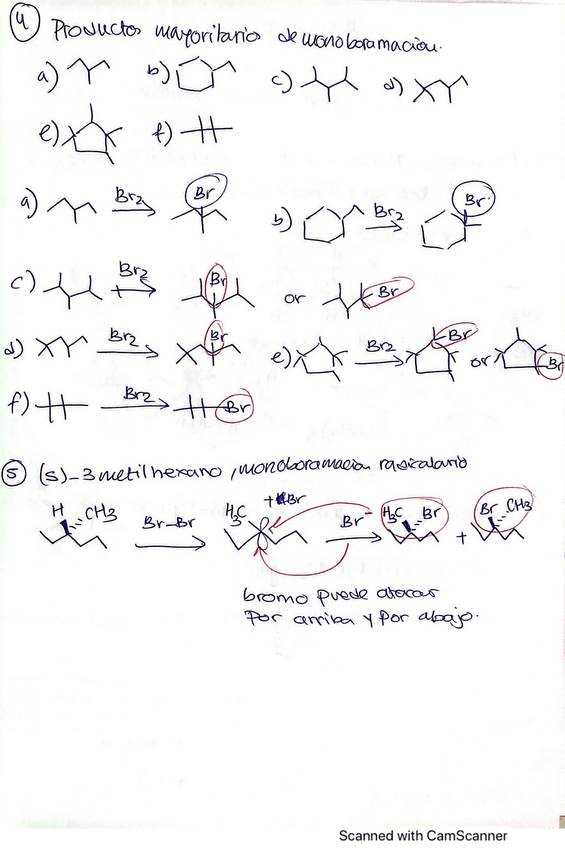 4 Productos mayoritario de monobromación.
a) b) c) d)
e) f)
a) Br2 Br b) Br2 Br
c) Br2 Br or Br
d) Br2 Br e) Br2 Br or Br
f) Br2 Br
5 (s)-3metilhexano, monobromación radicalario
H CH3 Br-Br H3C +HBr Br H3C Br + Br CH3
bromo puede atacar
Por arriba y Por abajo.
Scanned with CamScanner